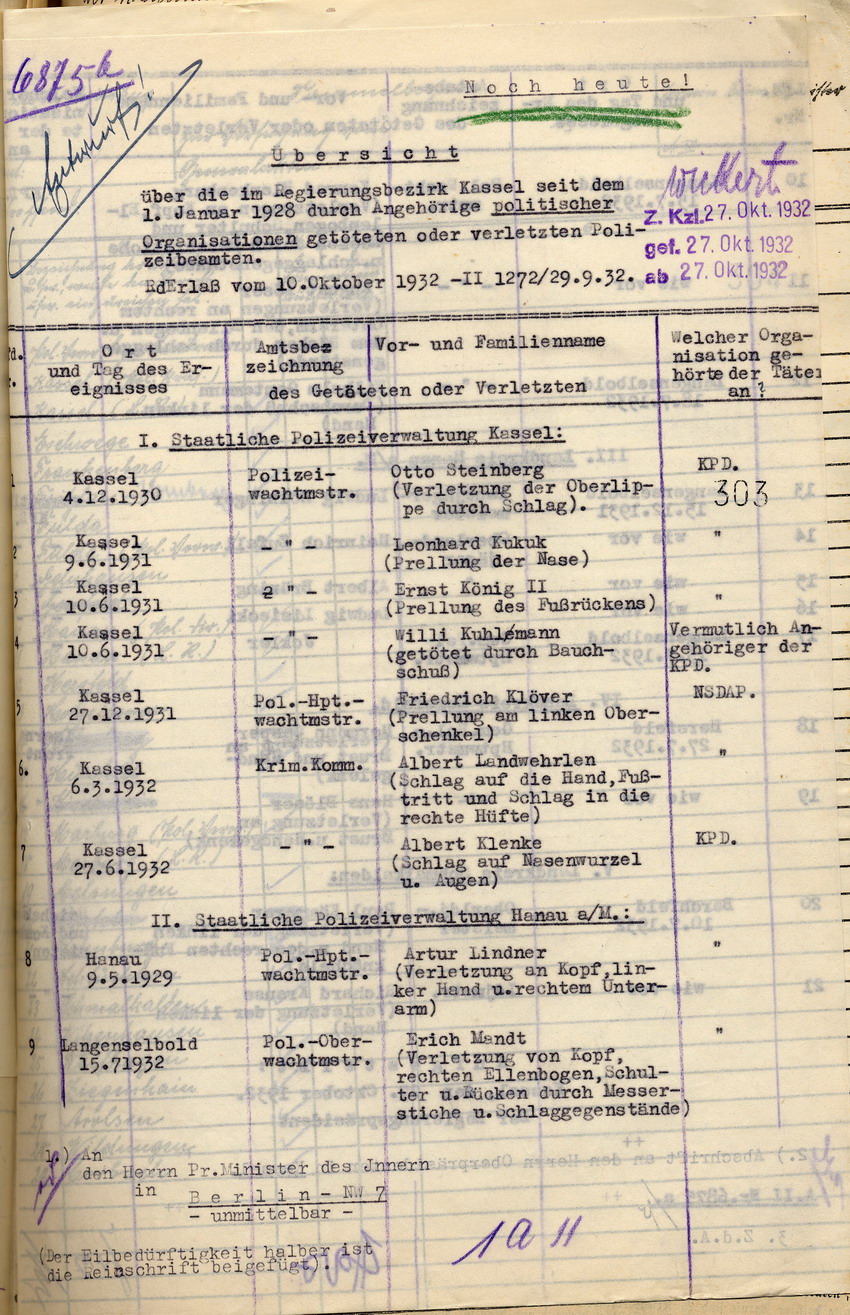 6875 b
Noch heute!
Übersicht
über die im Regierungsbezirk Kassel seit dem
1. Januar 1928 durch Angehörige politischer
Organisationen getöteten oder verletzten Poli-
zeibeamten.
RdErlaß vom 10.Oktober 1932 -II 1272/29.9.32.
Z. Kzl. 27. Okt. 1932
gef. 27. Okt. 1932
ab 27. Okt. 1932
Ort
und Tag des Er-
eignisses
Amtsbez
zeichnung
Vor- und Familienname
des Getöteten oder Verletzten
Welcher Orga-
nisation ge-
hörte der Täter
an?
I. Staatliche Polizeiverwaltung Kassel:
1
Kassel
4.12.1930
Polizei-
wachtmstr.
Otto Steinberg
(Verletzung der Oberlip-
pe durch Schlag).
KPD.
303
2
Kassel
9.6.1931
- " -
Leonhard Kukuk
(Prellung der Nase)
"
3
Kassel
10.6.1931
- " -
Ernst König II
(Prellung des Fußrückens)
"
4
Kassel
10.6.1931
- " -
Willi Kuhlmann
(getötet durch Bauch-
schuß)
Vermutlich An-
gehöriger der
KPD.
5
Kassel
27.12.1931
Pol.-Hpt.-
wachtmstr.
Friedrich Klöver
(Prellung am linken Ober-
schenkel)
NSDAP.
6.
Kassel
6.3.1932
Krim.Komm.
Albert Landwehrlen
(Schlag auf die Hand,Fuß-
tritt und Schlag in die
rechte Hüfte)
"
7
Kassel
27.6.1932
- " -
Albert Klenke
(Schlag auf Nasenwurzel
u. Augen)
KPD.
II. Staatliche Polizeiverwaltung Hanau a/M.:
8
Hanau
9.5.1929
Pol.-Hpt.-
wachtmstr.
Artur Lindner
(Verletzung an Kopf,lin-
ker Hand u.rechtem Unter-
arm)
"
9
Langenselbold
15.71932
Pol.-Ober-
wachtmstr.
Erich Mandt
(Verletzung von Kopf,
rechten Ellenbogen,Schul-
ter u.Rücken durch Messer-
stiche u.Schlaggegenstände)
"
1.) An
den Herrn Pr.Minister des Jnnern
in
Berlin-NW 7
- unmittelbar -
(Der Eilbedürftigkeit halber ist
die Reinschrift beigefügt).
1 A II